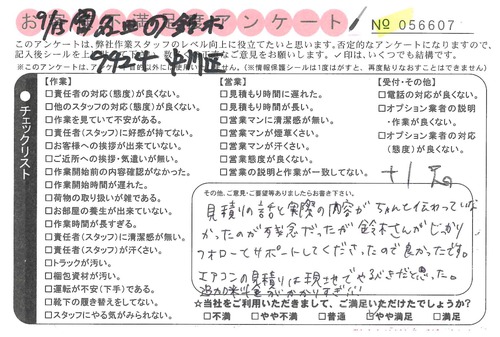 お 下 葉 度アンケート
№ 056607
このアンケートは、弊社作業スタッフのレベル向上に役立てたいと思います。否定的なアンケートになりますので、
記入後シールを上 ご意見をお願いします。✓印は、いくつでも結構です。
※このアンケートは、アンケート目的以外に 使用いたしません。(※情報保護シールは1度はがすと、再度貼りなおすことはできません)
チェックリスト
【作業】
□責任者の対応(態度)が良くない。
□他のスタッフの対応(態度)が良くない。
□作業を見ていて不安がある。
□責任者(スタッフ)に好感が持てない。
□お客様への挨拶が出来ていない。
□ご近所への挨拶・気遣いが無い。
□作業開始前の内容確認がなかった。
□作業開始時間が遅れた。
□荷物の取り扱いが雑である。
□お部屋の養生が出来ていない。
□作業時間が長すぎる。
□責任者(スタッフ)に清潔感が無い。
□責任者(スタッフ)が汗くさい。
□トラックが汚い。
□梱包資材が汚い。
□運転が不安(下手)である。
□靴下の履き替えをしてない。
□スタッフにやる気がみられない。
【営業】
□見積もり時間に遅れた。
□見積もり時間が長い。
□営業マンに清潔感が無い。
□営業マンが煙草くさい。
□営業マンが汗くさい。
□営業態度が良くない。
□営業の説明と作業が一致してない。
【受付・その他】
□電話の対応が良くない。
□オプション業者の説明
・作業が良くない。
□オプション業者の対応
(態度)が良くない。
その他、ご意見・ご要望等ありましたらお書き下さい。
見積りの話と実際の内容がちゃんと伝わっていな
かったのが残念だったが鈴木さんがしっかり
フォローてサポートしてくださったので良かったです。
エアコンの見積りは現地でやるべきだと思った。
追加料金がかかりすぎ!!
☆当社をご利用いただきまして、ご満足いただけたでしょうか?
□不満 □やや不満 □普通 □やや満足 □満足